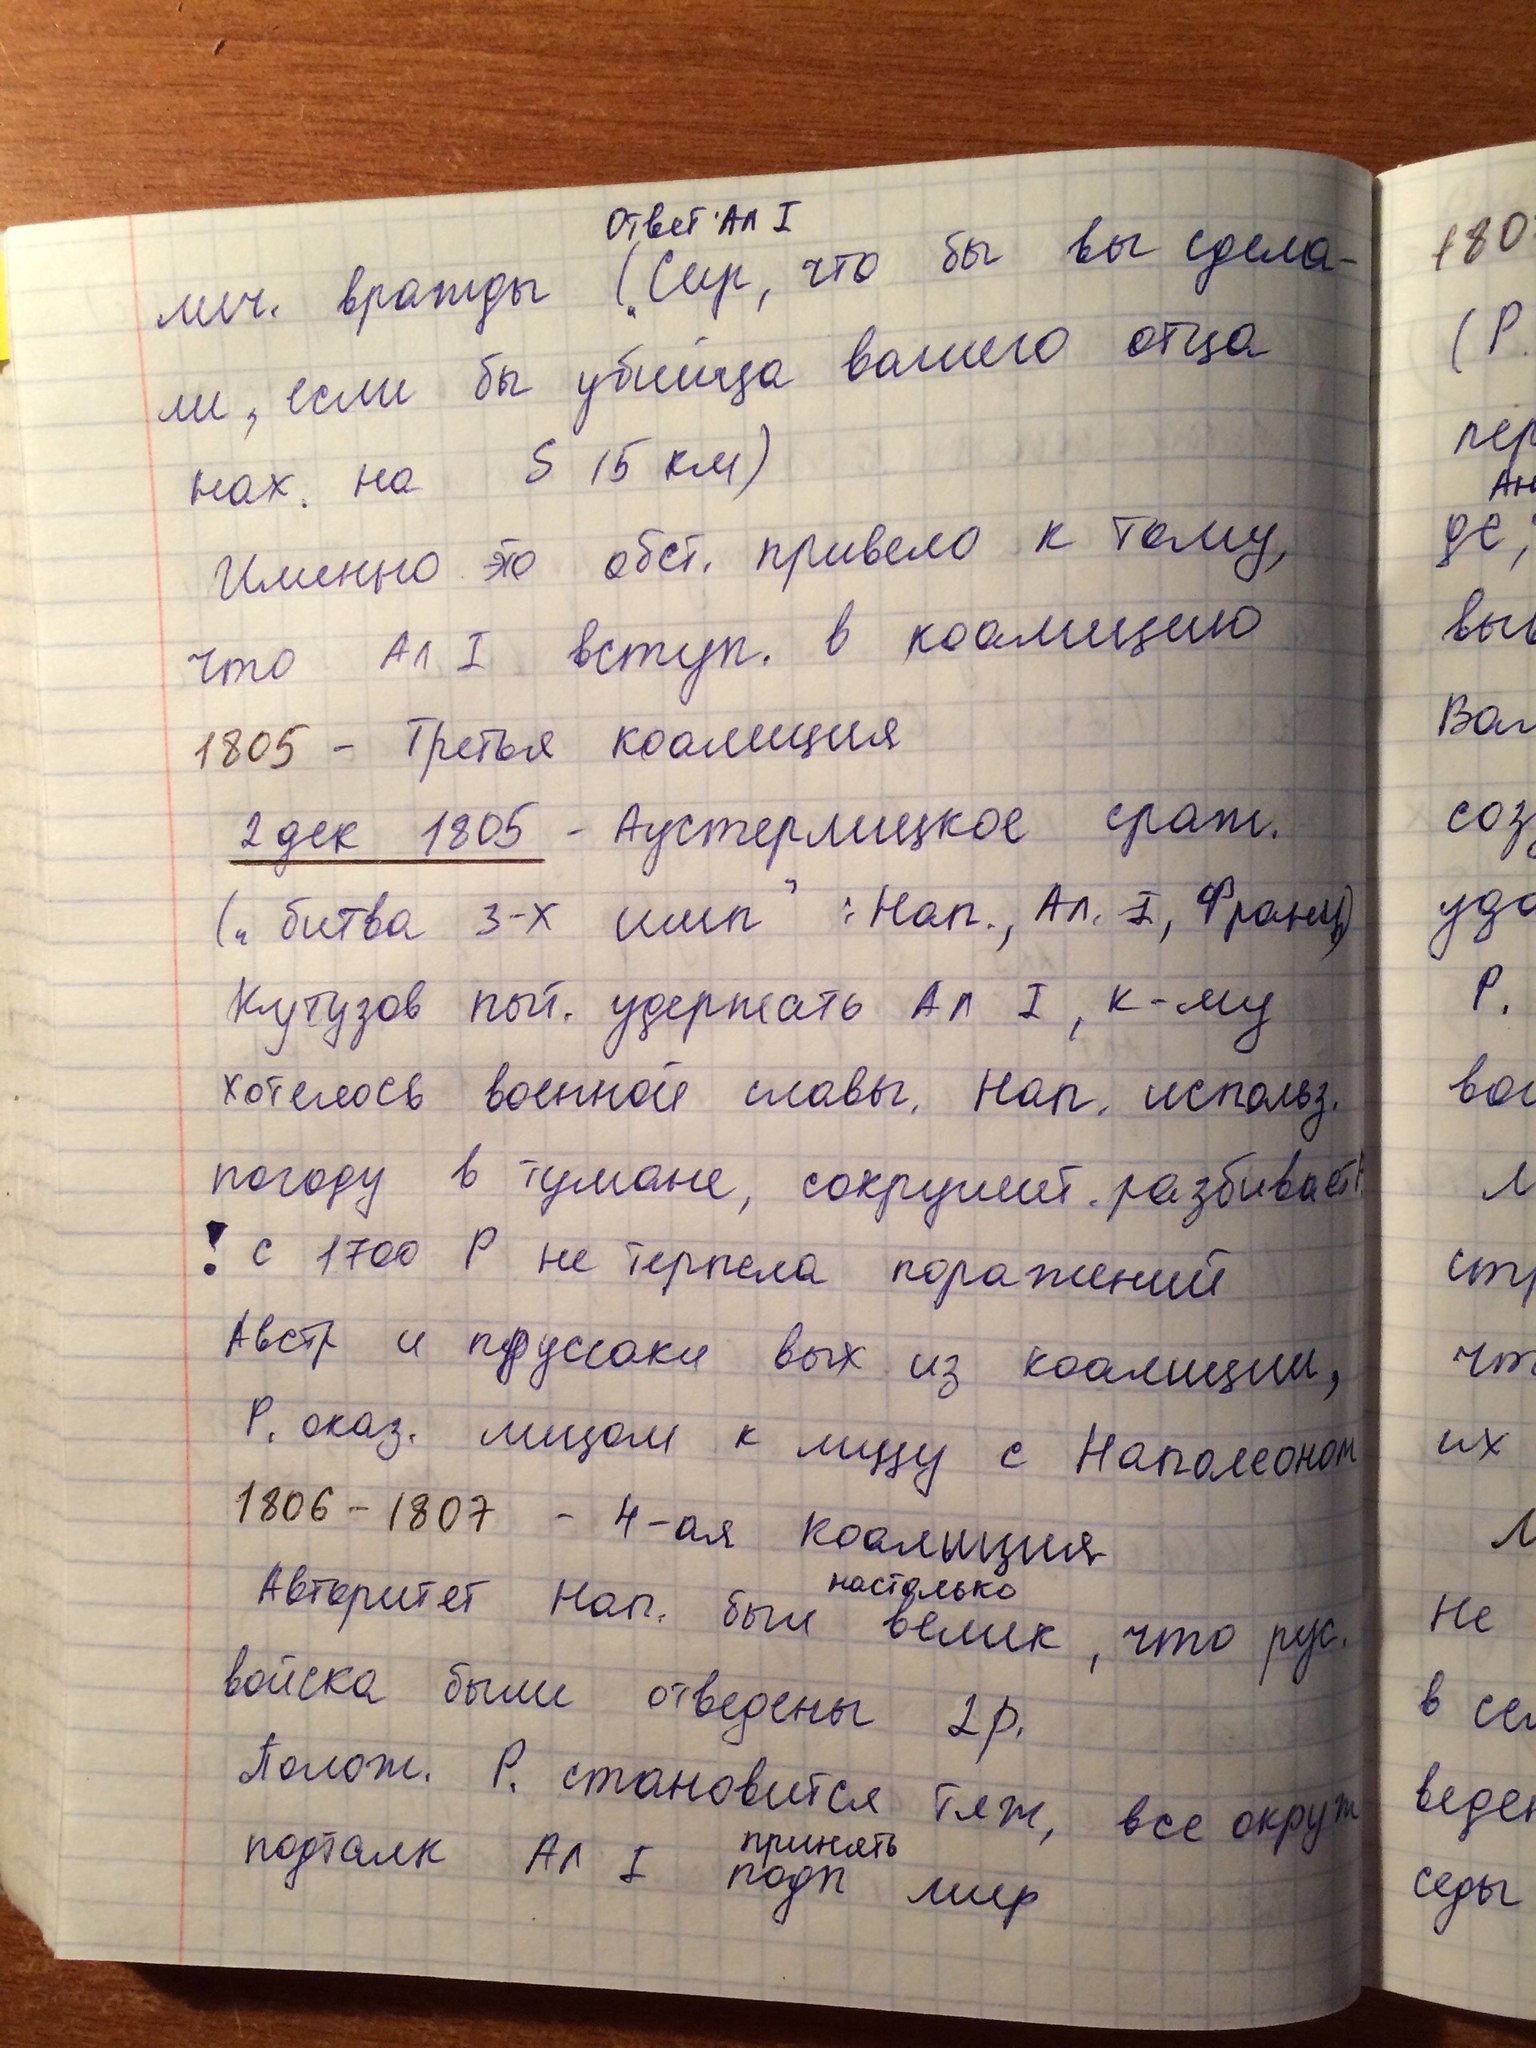 Ответ Ал I
лич. вражды („Сир, что бы вы сдела-
ли, если бы убийца вашего отца
нах. на S 15 км)
Именно это обст. привело к тому,
что Ал I вступ. в коалицию
1805 - Третья коалиция
2 дек 1805 - Аустерлицкое сраж.
(„битва 3-х имп" : Нап., Ал. I, Франц)
Кутузов пыт. удержать Ал I, к-му
хотелось военной славы. Нап. использ.
погоду в тумане, сокрушит. разбивает!
! с 1700 Р не терпела поражений
Австр и пруссаки вых из коалиции,
Р. оказ. лицом к лицу с Наполеоном
1806 - 1807 - 4-ая коалиция
настолько
Авторитет Нап. был велик, что рус.
войска были отведены 2 р.
Полож. Р. становится тяж, все окруж
принять
подталк Ал I подп мир
180
(Р.
пер
Ан
де,
выв
Вал
соз
уда
Р.
вое
стр
что
их
Не
в сел
веден
седы